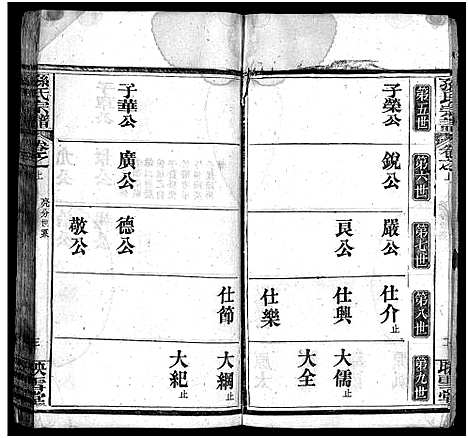 孫氏宗譜
第五世
第六世
第七世
第八世
第九世
子榮公
銳公
嚴公
仕介止
良公
仕興
大儒止
仕樂
大全
仕節
大綱止
大紀止
子華公
廣公
德公
敬公
孫氏宗譜
卷之上
亮分世系
映雪堂